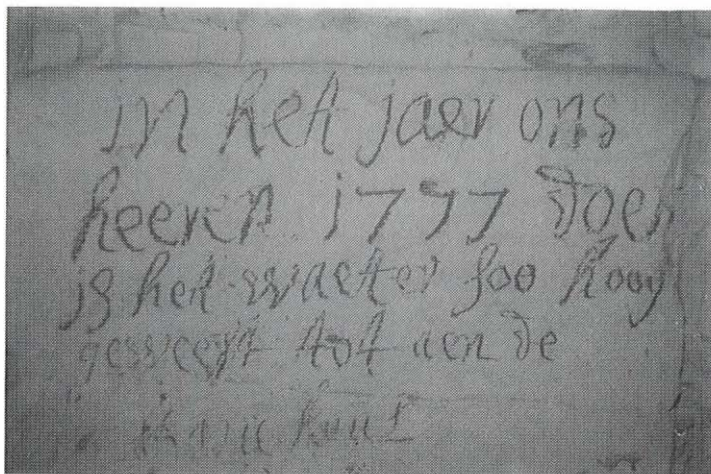 in het jaer ons
heeren 1777 doen
is het waeter soo hoog
gesweest tot aen de